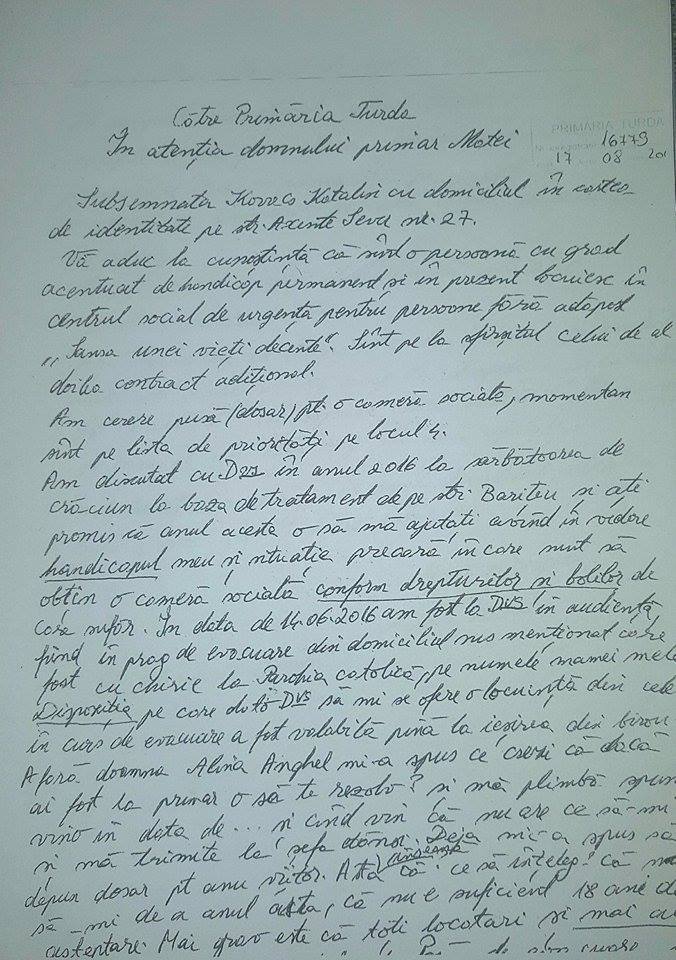 Către Primăria Turda
În atenția domnului primar Matei
PRIMĂRIA TURDA
16779
17 08 201
Subsemnata Kovacs Katalin cu domiciliul în cartea
de identitate pe str. Axente Sever nr. 27.
Vă aduc la cunoștință că sînt o persoană cu grad
accentuat de handicap permanent și în prezent locuiesc în
centrul social de urgență pentru persoane fără adăpost
„Șansa unei vieți decente”. Sînt pe la sfîrșitul celui de al
doilea contract adițional.
Am cerere pusă (dosar) pt. o cameră socială, momentan
sînt pe lista de priorități pe locul 4.
Am discutat cu Dvs în anul 2016 la sărbătoarea de
crăciun la baza de tratament de pe str. Barițiu și ați
promis că anul acesta o să mă ajutați avînd în vedere
handicapul meu și situația precară în care sunt să
obțin o cameră socială conform drepturilor și bolilor de
care sufăr. În data de 14.06.2016 am fost la Dvs în audiență
fiind în prag de evacuare din domiciliul sus menționat care
fost cu chirie la Parohia catolică, pe numele mamei mele
Dispoziția pe care ați dat-o Dvs să mi se ofere o locuință din cele
în curs de evacuare a fost valabilă pînă la ieșirea din birou
Afară doamna Alina Anghel mi-a spus ce crezi că dacă
ai fost la primar o să te rezolv? și mă plimbă spun
vino în data de ... și cînd vin că nu are ce să-mi
și mă trimite la șefa dînsei. Deja mi-a spus să
depun dosar pt anu viitor. Asta înseamnă că ce să înțeleg? că nu
să-mi dea anul asta, că nu e suficient 18 ani de
așteptare. Mai grav este că toți locatari și mai au